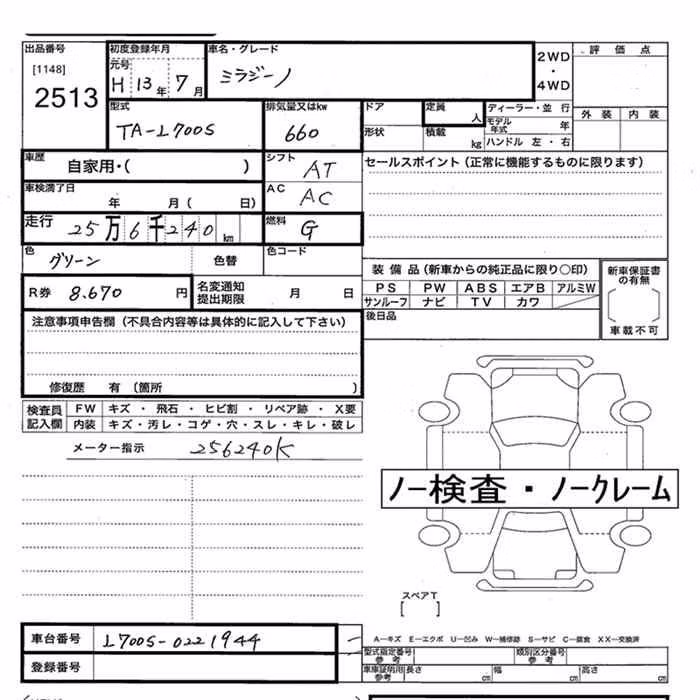 出品番号
[1148]
2513
初度登録年月
元号
H 13年 7月
車名・グレード
ミラジーノ
2WD
・
4WD
評価点
外装 内装
型式
TA-L700S
排気量又はkw
660
ドア
形状
定員
人
積載
kg
ディーラー・並行
モデル年式 年
ハンドル 左・右
車歴
自家用・( )
シフト
AT
セールスポイント(正常に機能するものに限ります)
車検満了日
年 月( 日)
AC
AC
走行
25万6千240km
燃料
G
色
グリーン
色替
色コード
装備品(新車からの純正品に限り○印)
PS PW ABS エアB アルミW
サンルーフ ナビ TV カワ
新車保証書の有無
車載不可
R券 8.670 円
名変通知
提出期限
月 日
後日品
注意事項申告欄(不具合内容等は具体的に記入して下さい)
修復歴 有(箇所 )
検査員
記入欄
FW キズ・飛石・ヒビ割・リペア跡・X要
内装 キズ・汚レ・コゲ・穴・スレ・キレ・破レ
メーター指示 256240K
ノー検査・ノークレーム
スペアT
[ ]
車台番号 L700S-0221944
登録番号
A-キズ E-エクボ U-凹み W-補修跡 S-サビ C-腐食 XX-交換済
型式指定番号
参考
類別区分番号
参考
車車証明用
参考
長さ cm 幅 cm 高さ cm